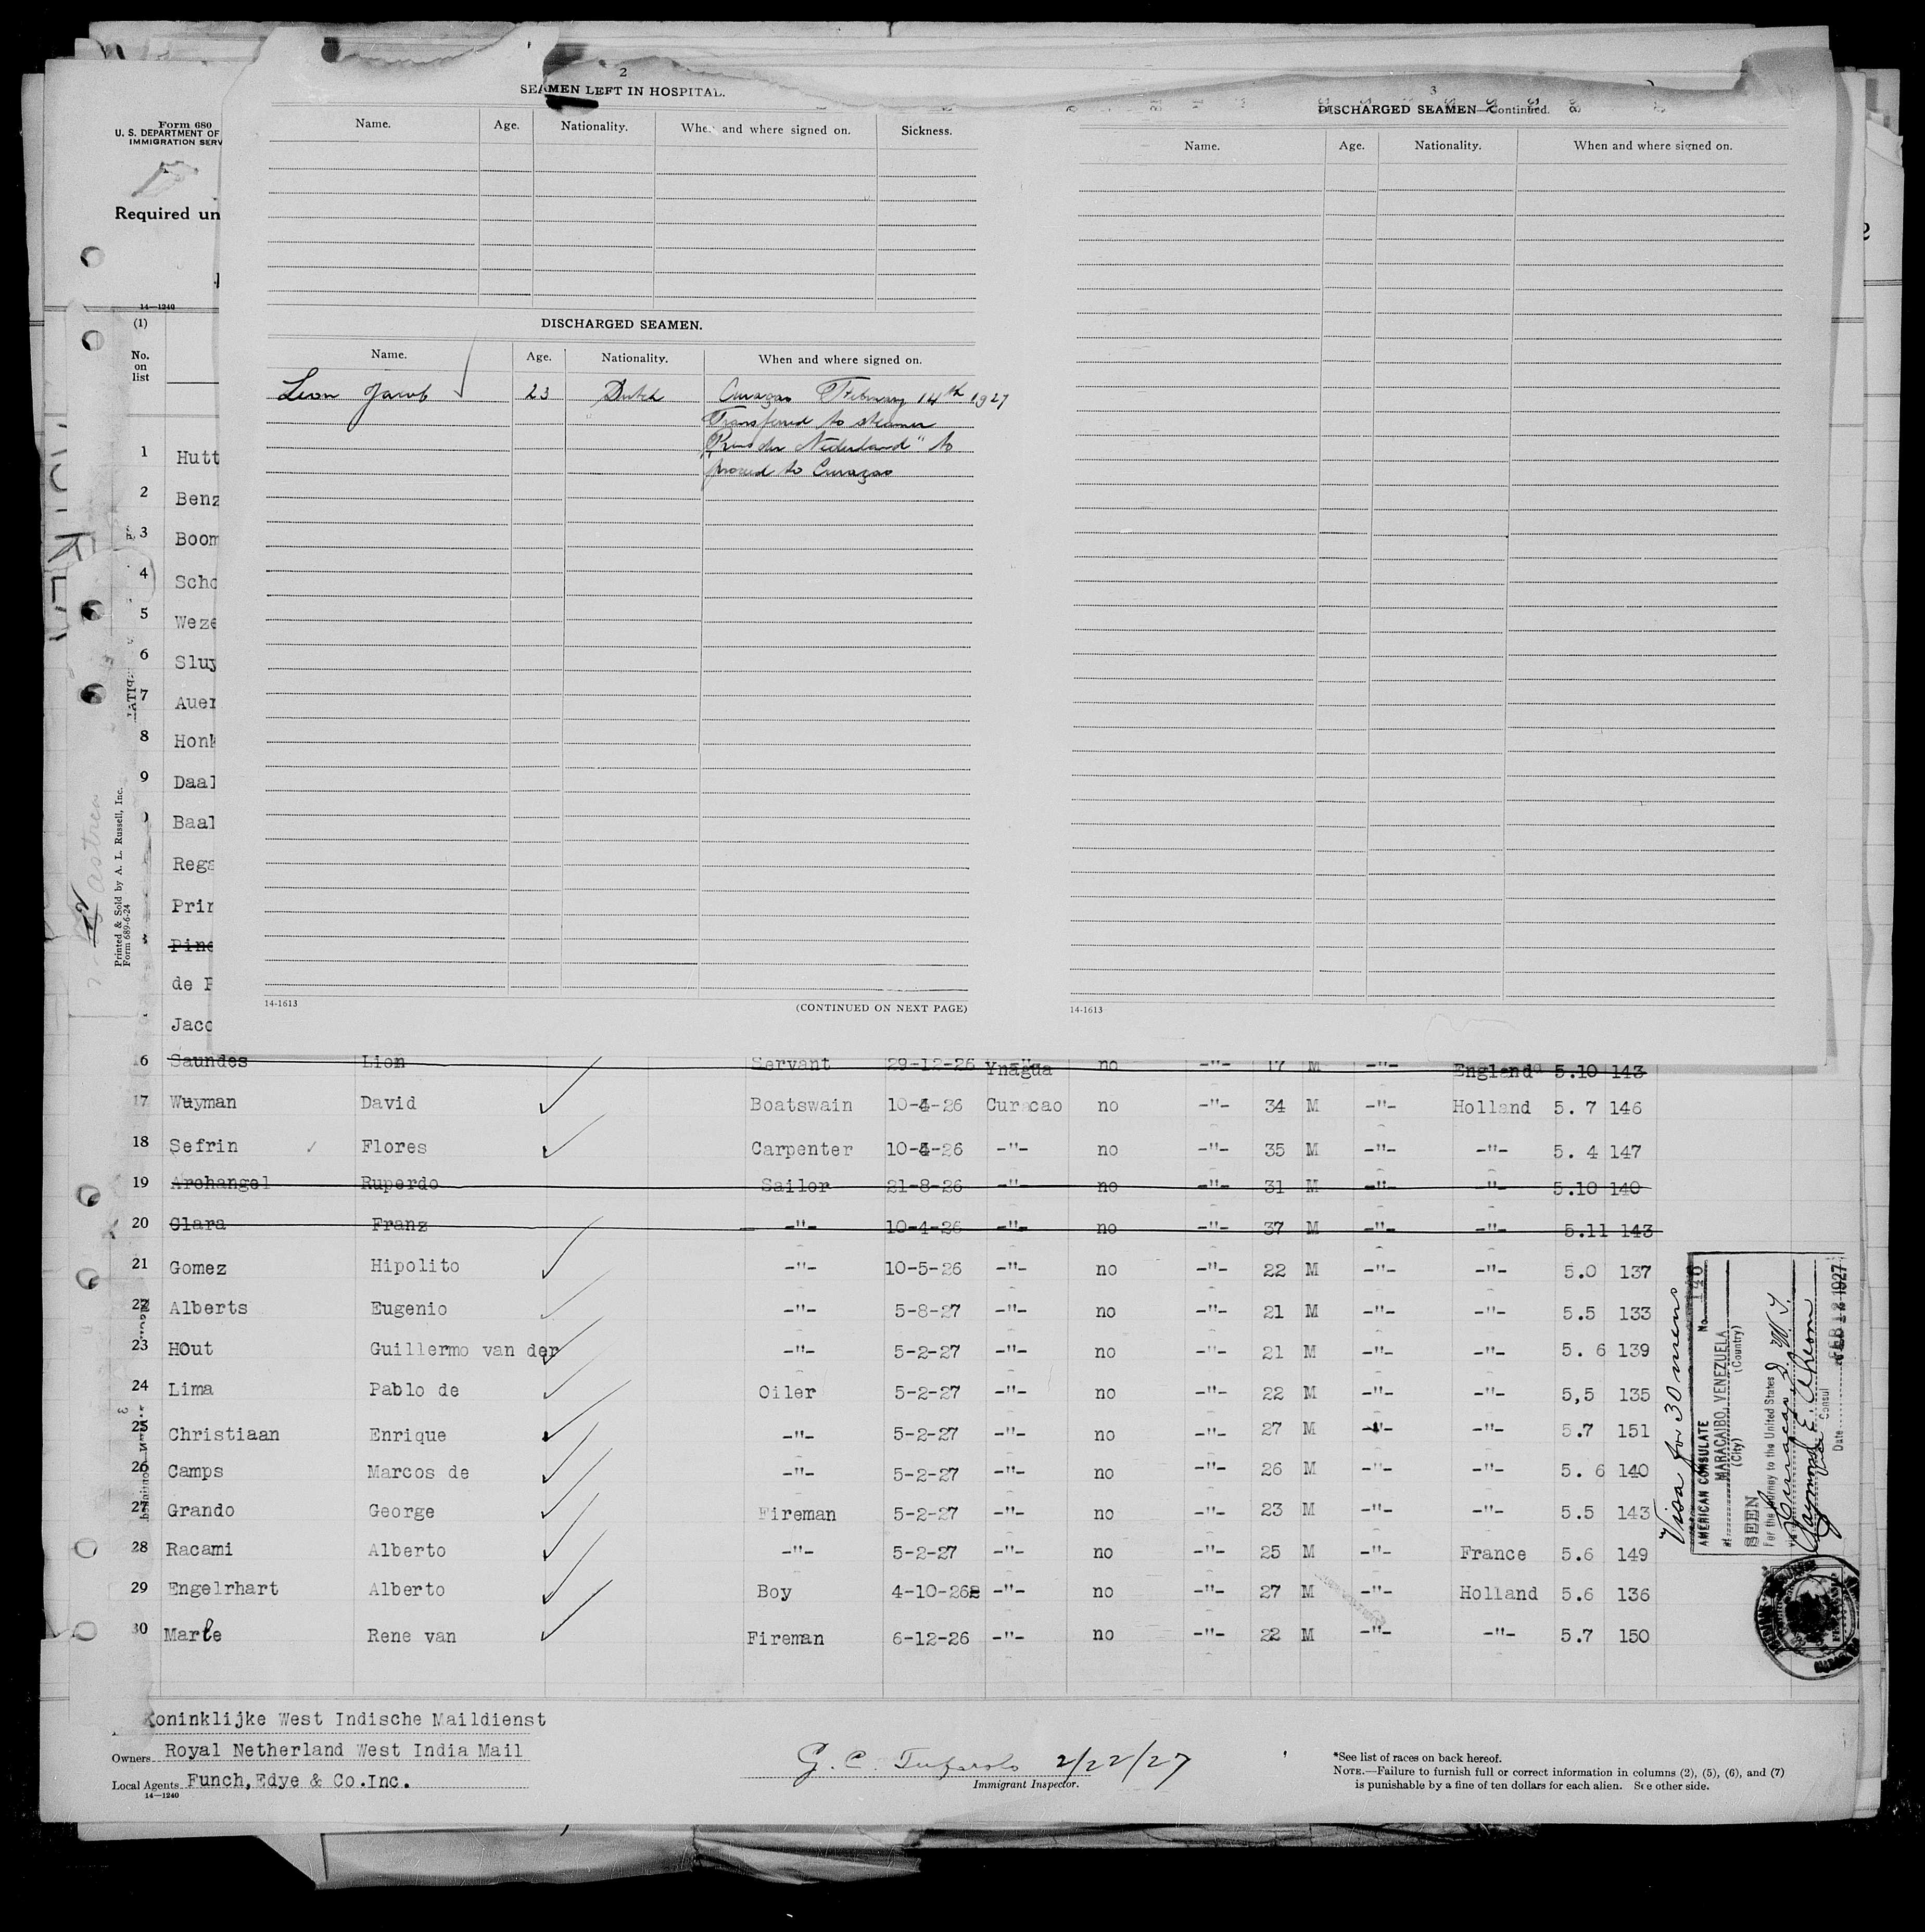 2
SEAMEN LEFT IN HOSPITAL.
Name. Age. Nationality. When and where signed on. Sickness.
DISCHARGED SEAMEN.
Name. Age. Nationality. When and where signed on.
Leon Jacob 23 Dutch Curaçao February 14th 1927
Transferred to steamer
"Prins der Nederland" to
proceed to Curaçao
14-1613 (CONTINUED ON NEXT PAGE)
3
DISCHARGED SEAMEN—Continued.
Name. Age. Nationality. When and where signed on.
14-1613
Form 680
U. S. DEPARTMENT OF
IMMIGRATION SERV
Required un
14—1240
(1)
No.
on
list
1 Hutt
2 Benz
3 Boom
4 Scho
5 Weze
6 Sluy
7 Auer
8 Honk
9 Daal
Baal
Rega
Prin
Pine
de P
Jaco
Printed & Sold by A. L. Russell, Inc.
Form 689-6-24
6 Saundes Lion Servant 29-12-26 Ynagua no -"- 17 M -"- England 5.10 143
17 Wuyman David Boatswain 10-4-26 Curacao no -"- 34 M -"- Holland 5. 7 146
18 Sefrin Flores Carpenter 10-4-26 -"- no -"- 35 M -"- -"- 5. 4 147
19 Archangel Ruperdo Sailor 21-8-26 -"- no -"- 31 M -"- -"- 5.10 140
20 Clara Franz -"- 10-4-26 -"- no -"- 37 M -"- -"- 5.11 143
21 Gomez Hipolito -"- 10-5-26 -"- no -"- 22 M -"- -"- 5.0 137
22 Alberts Eugenio -"- 5-8-27 -"- no -"- 21 M -"- -"- 5.5 133
23 HOut Guillermo van der -"- 5-2-27 -"- no -"- 21 M -"- -"- 5. 6 139
24 Lima Pablo de Oiler 5-2-27 -"- no -"- 22 M -"- -"- 5,5 135
25 Christiaan Enrique -"- 5-2-27 -"- no -"- 27 M -"- -"- 5.7 151
26 Camps Marcos de -"- 5-2-27 -"- no -"- 26 M -"- -"- 5. 6 140
27 Grando George Fireman 5-2-27 -"- no -"- 23 M -"- -"- 5.5 143
28 Racami Alberto -"- 5-2-27 -"- no -"- 25 M -"- France 5.6 149
29 Engelrhart Alberto Boy 4-10-26 -"- no -"- 27 M -"- Holland 5.6 136
30 Marle Rene van Fireman 6-12-26 -"- no -"- 22 M -"- -"- 5.7 150
Visa for 30 mens
AMERICAN CONSULATE No. 140
at MARACAIBO, VENEZUELA
(City) (Country)
SEEN
For the journey to the United States
Curaçao D.W.I.
Vice Consul
Date FEB 12 1927
Koninklijke West Indische Maildienst
Owners Royal Netherland West India Mail
Local Agents Funch, Edye & Co. Inc.
14—1240
G. C. 2/22/27
Immigrant Inspector.
*See list of races on back hereof.
NOTE.—Failure to furnish full or correct information in columns (2), (5), (6), and (7)
is punishable by a fine of ten dollars for each alien. See other side.